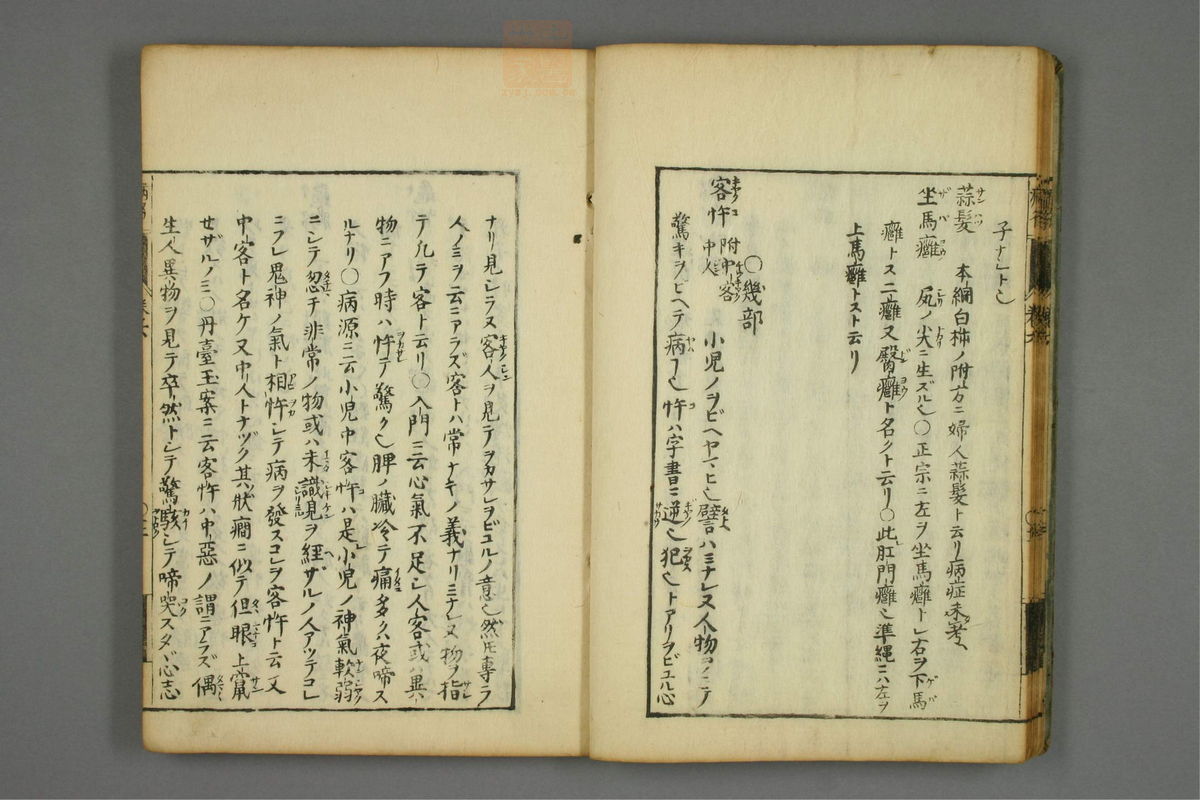 子ナレト乄
蒜髪 本綱白柿ノ附方ニ婦人蒜髪ト云リ病症未考
坐馬癰 尻ノ尖ニ生ズル也〇正宗ニ左ヲ坐馬癰トシ右ヲ下馬
癰トス二癰又臀癰ト名クト云リ〇此肛門癰也準縄ニハ左ヲ
上馬癰トスト云リ
〇幾部
客忤 附中客 中人 小児ノヲビヘヤマヒ也譬ハミナレヌ人物ヲミテ
驚キヲビヘテ病ヿ也忤ハ字書ニ逆也犯也トアリヲビユル心
ナリ見シラヌ客人ヲ見テヲカサレヲビユルノ意也然𪜈専ラ
人ノミヲ云ニアラズ客トハ常ナキノ義ナリミナレヌ物ヲ指
テ凡テ客ト云リ〇入門ニ云心氣不足シ人客或ハ異
物ニアフ時ハ忤テ驚ク也脾ノ臓冷テ痛多クハ夜啼ス
ルナリ〇病源ニ云小児中客忤ハ是小児ノ神氣軟弱
ニシテ忽チ非常ノ物或ハ未識見ヲ經ザルノ人アツテコレ
ニフレ鬼神ノ氣ト相忤シテ病ヲ發スコレヲ客忤ト云又
中客ト名ケ又中人トナヅク其状癇ニ似テ但眼上竄
せザルノミ〇丹臺玉案ニ云客忤ハ中惡ノ謂ニアラズ偶
生人異物ヲ見テ卒然トシテ驚駭シテ啼哭スタダ心志